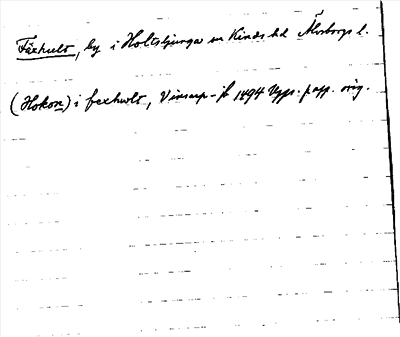 Fäxhult, by i Holtsljunga sn Kinds hd Älvsborgs l.
(Hokon) i fexhult, Vinsarp - jb 1494 Upps. papp. orig.